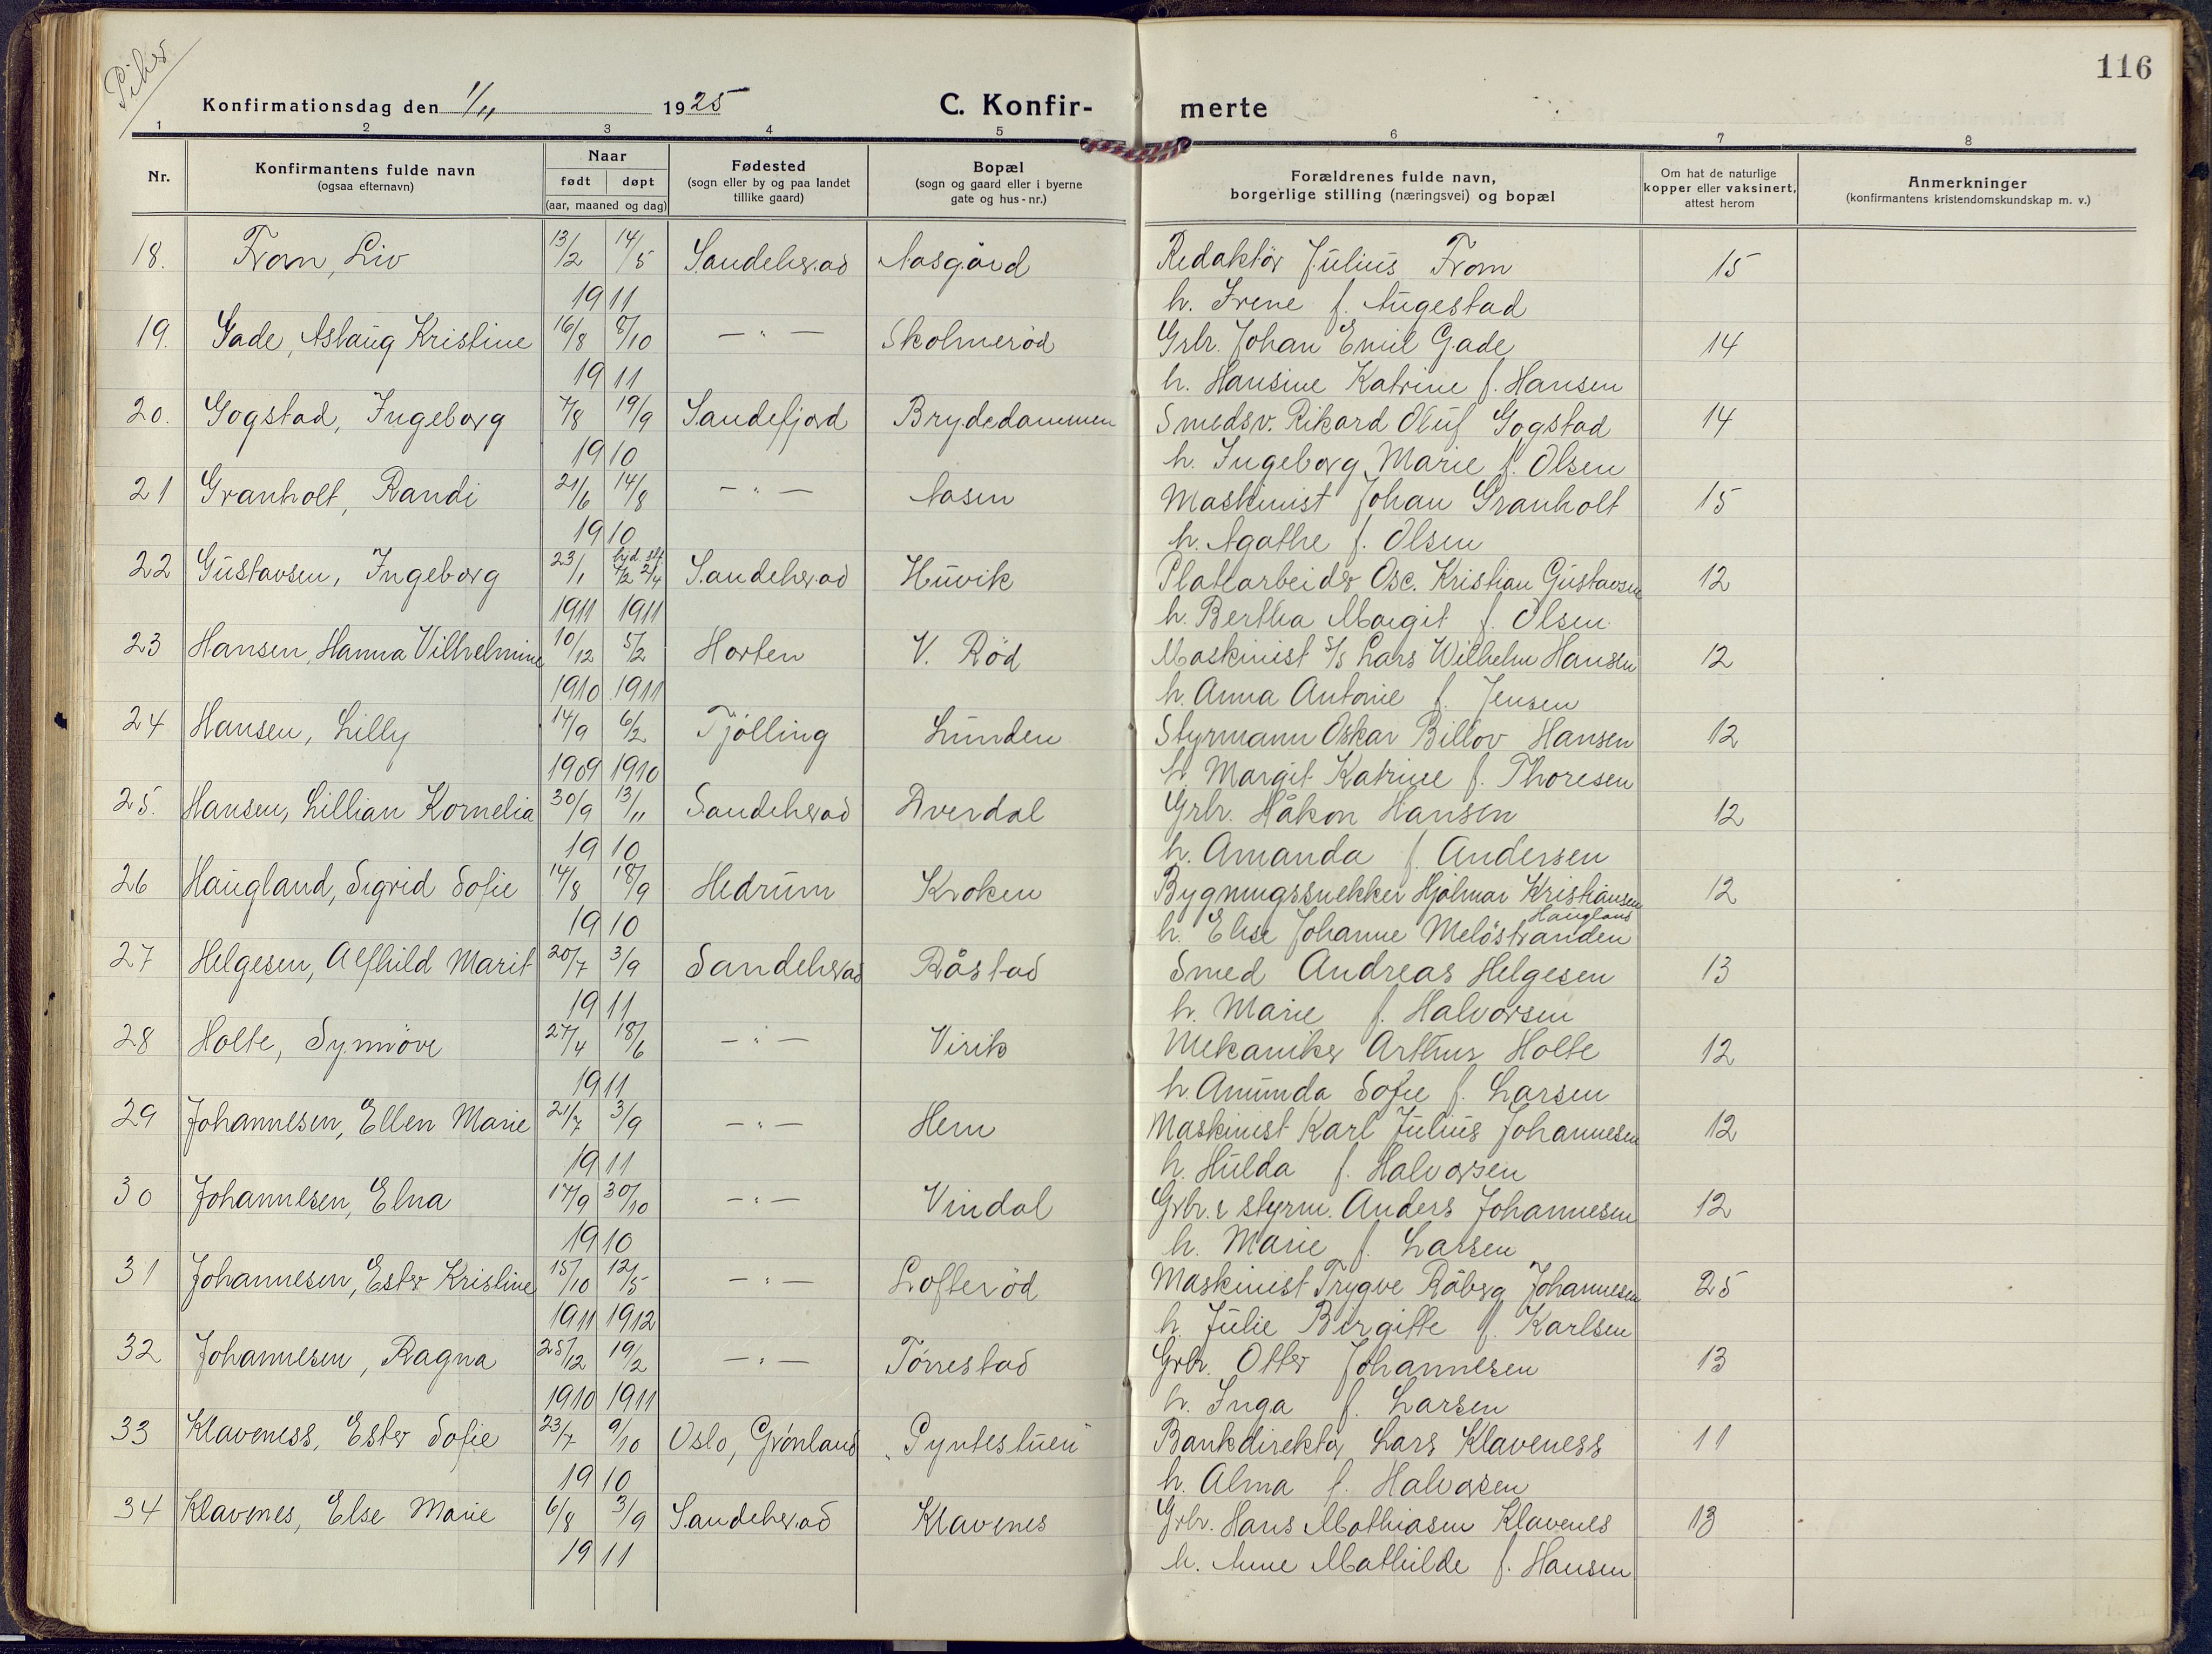 Piker
116
Konfirmationsdag den 1/11 1925 C. Konfir- merte
1 2 3 4 5 6 7 8
Nr. Konfirmantens fulde navn (ogsaa efternavn) Naar født døpt (aar, maaned og dag) Fødested (sogn eller by og paa landet tillike gaard) Bopæl (sogn og gaard eller i byerne gate og hus-nr.) Forældrenes fulde navn, borgerlige stilling (næringsvei) og bopæl Om hat de naturlige kopper eller vaksinert, attest herom Anmerkninger (konfirmantens kristendomskundskap m. v.)
18. From, Liv 13/2 14/5 Sandeherad Aasgård Redaktör Julius From 15
1911 h. Irene f. Augestad
19. Gade, Aslaug Kristine 16/8 8/10 — " — Skolmeröd Grbr. Johan Emil Gade 14
1911 h. Hansine Katrine f. Hansen
20. Gogstad, Ingeborg 7/8 19/9 Sandefjord Brydedammen Smedsv. Rikard Oluf Gogstad 14
1910 h. Ingeborg Marie f. Olsen
21 Granholt, Randi 21/6 14/8 — " — Aasen Maskinist Johan Granholt 15
1910 h. Agathe f. Olsen
22 Gustavsen, Ingeborg 23/1 hjd. 7/2 stf 2/4 Sandeherad Huvik Platearbeider Osc. Kristian Gustavsen 12
1911 1911 h. Bertha Margit f. Olsen
23 Hansen, Hanna Vilhelmine 10/12 5/2 Horten V. Röd Maskinist S/S Lars Wilhelm Hansen 12
1910 1911 h. Anna Antonie f. Jensen
24 Hansen, Lilly 14/9 6/2 Tjölling Lunden Styrmann Oskar Billov Hansen 12
1909 1910 h. Margit Katrine f. Thoresen
25. Hansen, Lillian Kornelia 30/9 13/11 Sandeherad Dverdal Grbr. Håkon Hansen 12
1910 h. Amanda f. Andersen
26 Haugland, Sigrid Sofie 14/8 18/9 Hedrum Kroken Bygningssnekker Hjalmar Kristiansen 12
Haugland
1910 h. Elise Johanne Melöstranden
27 Helgesen, Alfhild Marit 20/7 3/9 Sandeherad Råstad Smed Andreas Helgesen 13
1911 h. Marie f. Halvorsen
28 Holte, Synnöve 27/4 18/6 — " — Virik Mekaniker Arthur Holte 12
1911 h. Amunda Sofie f. Larsen
29 Johannesen, Ellen Marie 21/7 3/9 — " — Hem Maskinist Karl Julius Johannesen 12
1911 h. Hulda f. Halvorsen
30 Johannesen, Elna 17/9 30/10 — " — Vindal Grbr. & styrm. Anders Johannesen 12
1910 h. Marie f. Larsen
31 Johannesen, Ester Kristine 15/10 12/5 — " — Lofteröd Maskinist Trygve Råberg Johannesen 25
1911 1912 h. Julie Birgitte f. Karlsen
32 Johannesen, Ragna 25/12 19/2 — " — Törrestad Grbr. Otter Johannesen 13
1910 1911 h. Inga f. Larsen
33 Klaveness, Ester Sofie 23/7 9/10 Oslo, Grönland "Pyntestuen" Bankdirektör Lars Klaveness 11
1910 h. Alma f. Halvorsen
34 Klavenes, Else Marie 6/8 3/9 Sandeherad Klavenes Grbr. Hans Mathiasen Klavenes 13
1911 h. Anne Mathilde f. Hansen